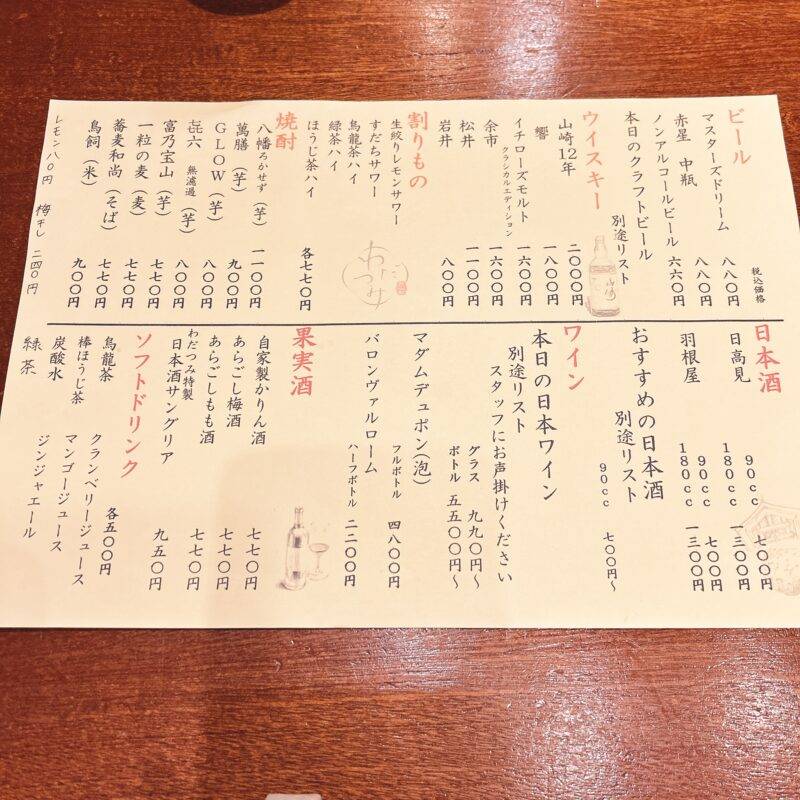 税込価格
ビール
マスターズドリーム 八八〇円
赤星 中瓶 八八〇円
ノンアルコールビール 六六〇円
本日のクラフトビール
別途リスト
ウイスキー
山崎12年 二〇〇〇円
響 一八〇〇円
イチローズモルト 一六〇〇円
クラシカルエディション
余市 一六〇〇円
松井 一一〇〇円
岩井 八〇〇円
割りもの
生絞りレモンサワー
すだちサワー
烏龍茶ハイ
緑茶ハイ
ほうじ茶ハイ
各七七〇円
わだつみ
焼酎
八幡ろかせず(芋) 一一〇〇円
萬膳(芋) 九〇〇円
GLOW(芋) 八〇〇円
㐂六 無濾過(芋) 八〇〇円
富乃宝山(芋) 七七〇円
一粒の麦(麦) 七七〇円
蕎麦和尚(そば) 七七〇円
鳥飼(米) 九〇〇円
レモン八〇円 梅干し 二四〇円
日本酒
日高見 90cc 七〇〇円
180cc 一三〇〇円
羽根屋 90cc 七〇〇円
180cc 一三〇〇円
おすすめの日本酒
別途リスト
90cc 七〇〇円~
ワイン
本日の日本ワイン
別途リスト
スタッフにお声掛けください
グラス 九九〇円~
ボトル 五五〇〇円~
マダムデュポン(泡)
フルボトル 四八〇〇円
バロンヴァルローム
ハーフボトル 二二〇〇円
果実酒
自家製かりん酒 七七〇円
あらごし梅酒 七七〇円
あらごしもも酒 七七〇円
わだつみ特製
日本酒サングリア 九五〇円
ソフトドリンク
各五〇〇円
烏龍茶 クランベリージュース
棒ほうじ茶 マンゴージュース
炭酸水 ジンジャエール
緑茶